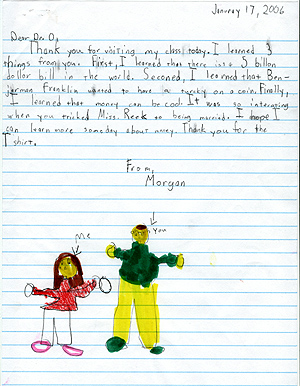 January 17, 2006
Dear Dr. O,
Thank you for visiting my class today. I learned 3
things from you. First, I learned that there is a 5 billon
dollar bill in the world. Seconed, I learned that Ben-
jerman Franklin wanted to have a turkey on a coin. Finally,
I learned that money can be cool. It was so interesting
when you tricked Miss. Reek to being married. I hope I
can learn more someday about money. Thank you for the
T shirt.
From,
Morgan
you
Me